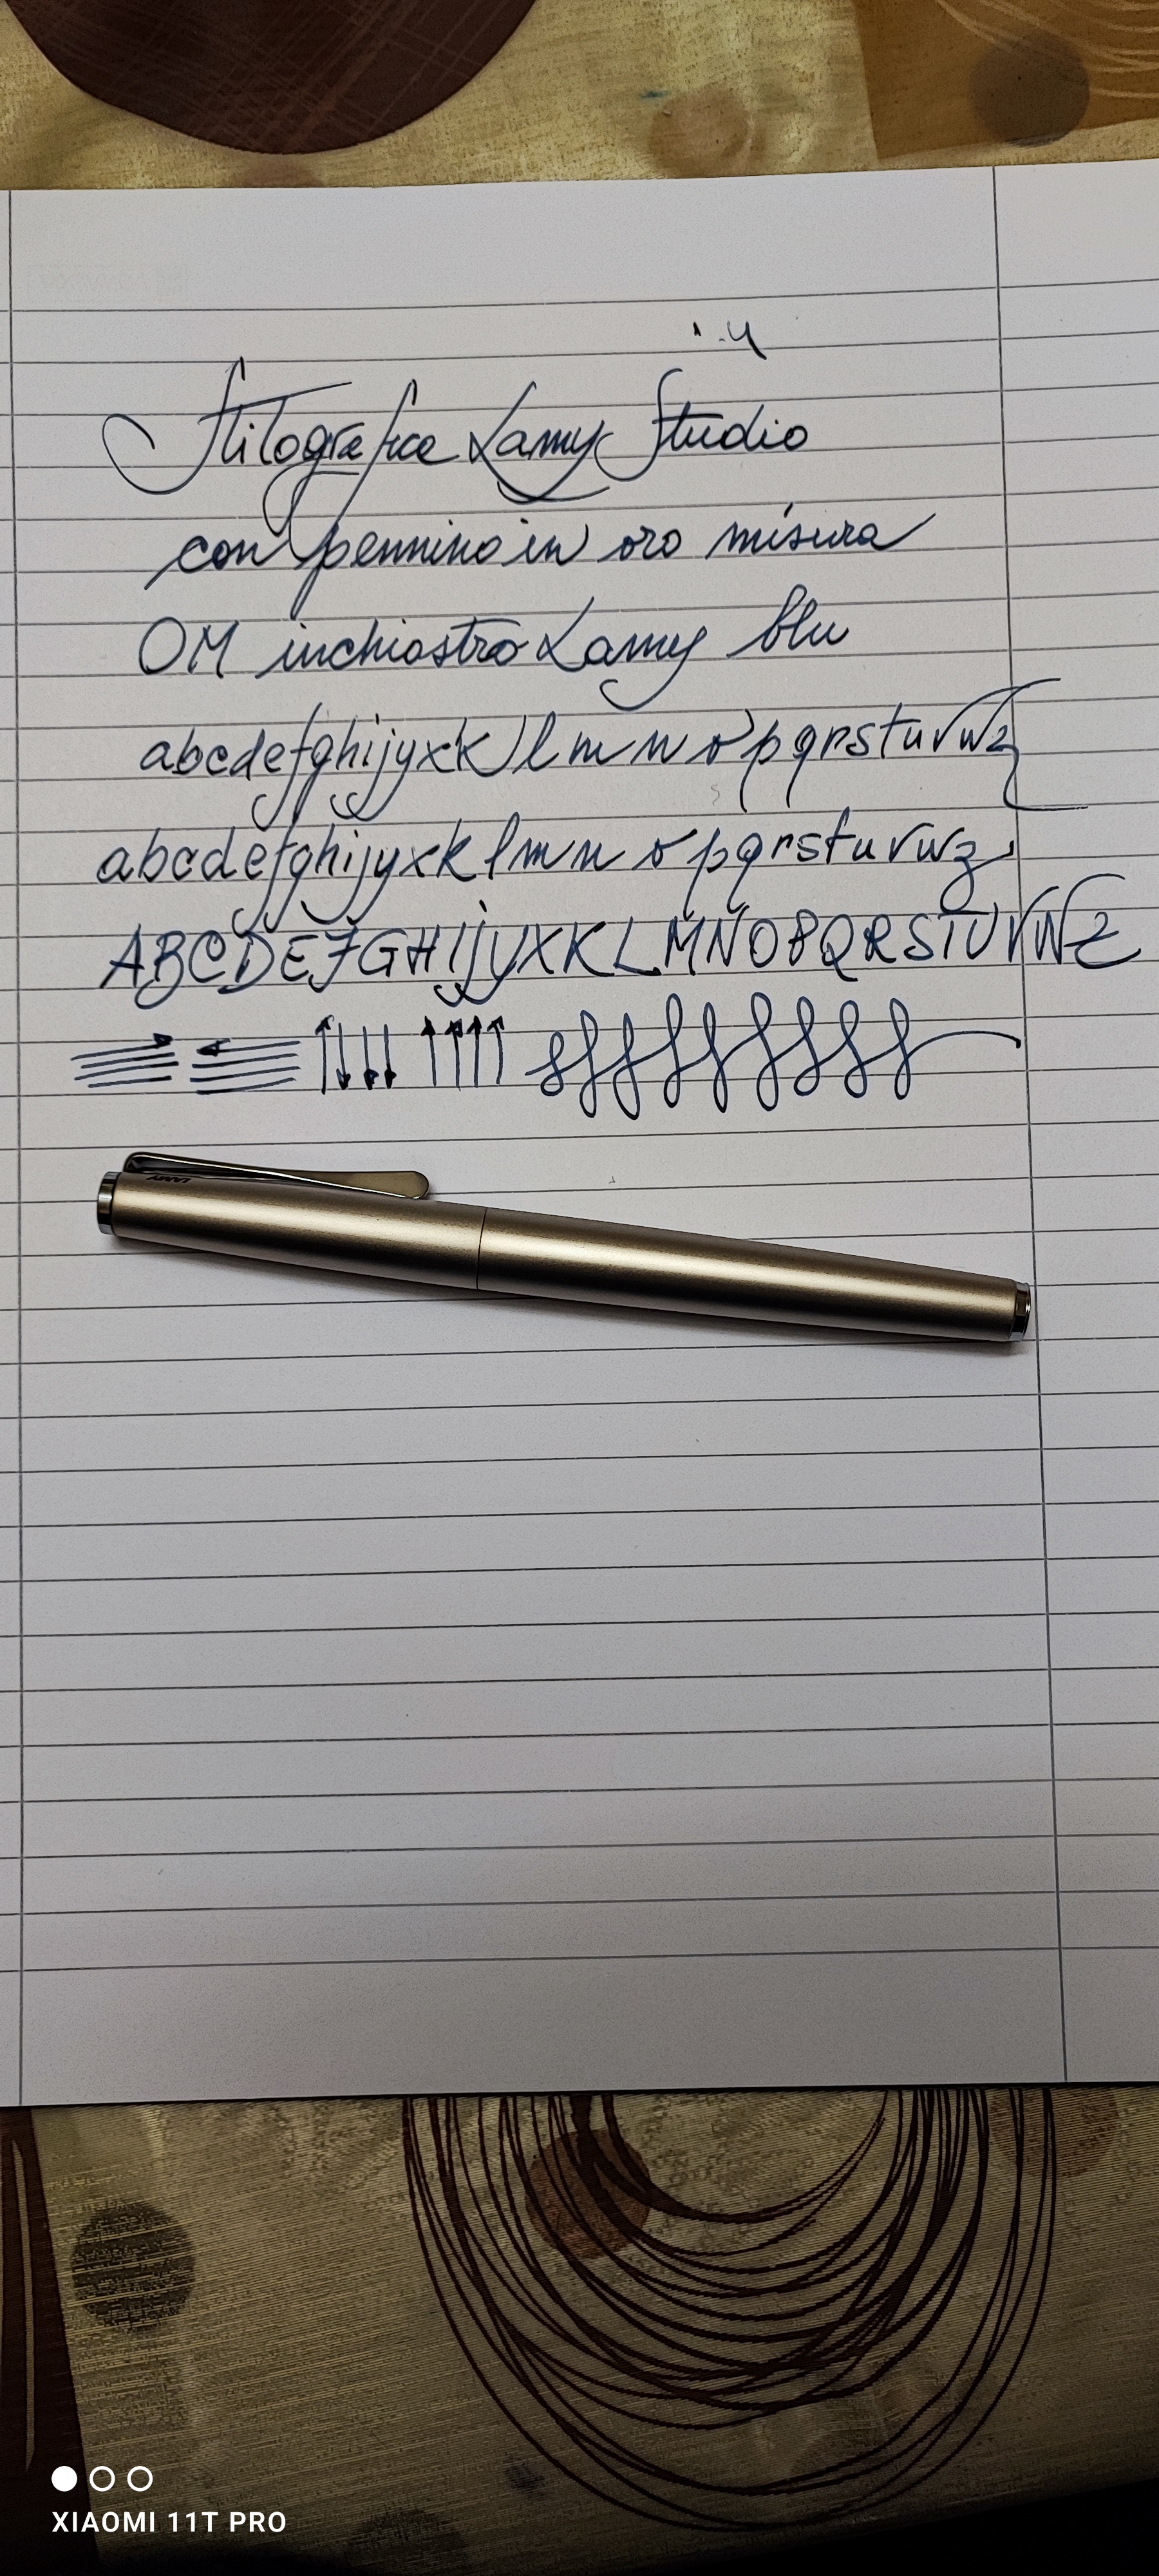 Stilografica Lamy Studio
con pennino in oro misura
OM inchiostro Lamy blu
abcdefghijyxklmnopqrstuvwz
abcdefghijyxklmnopqrstuvwz
ABCDEFGHIJYXKLMNOPQRSTUVWZ
LAMY
XIAOMI 11T PRO